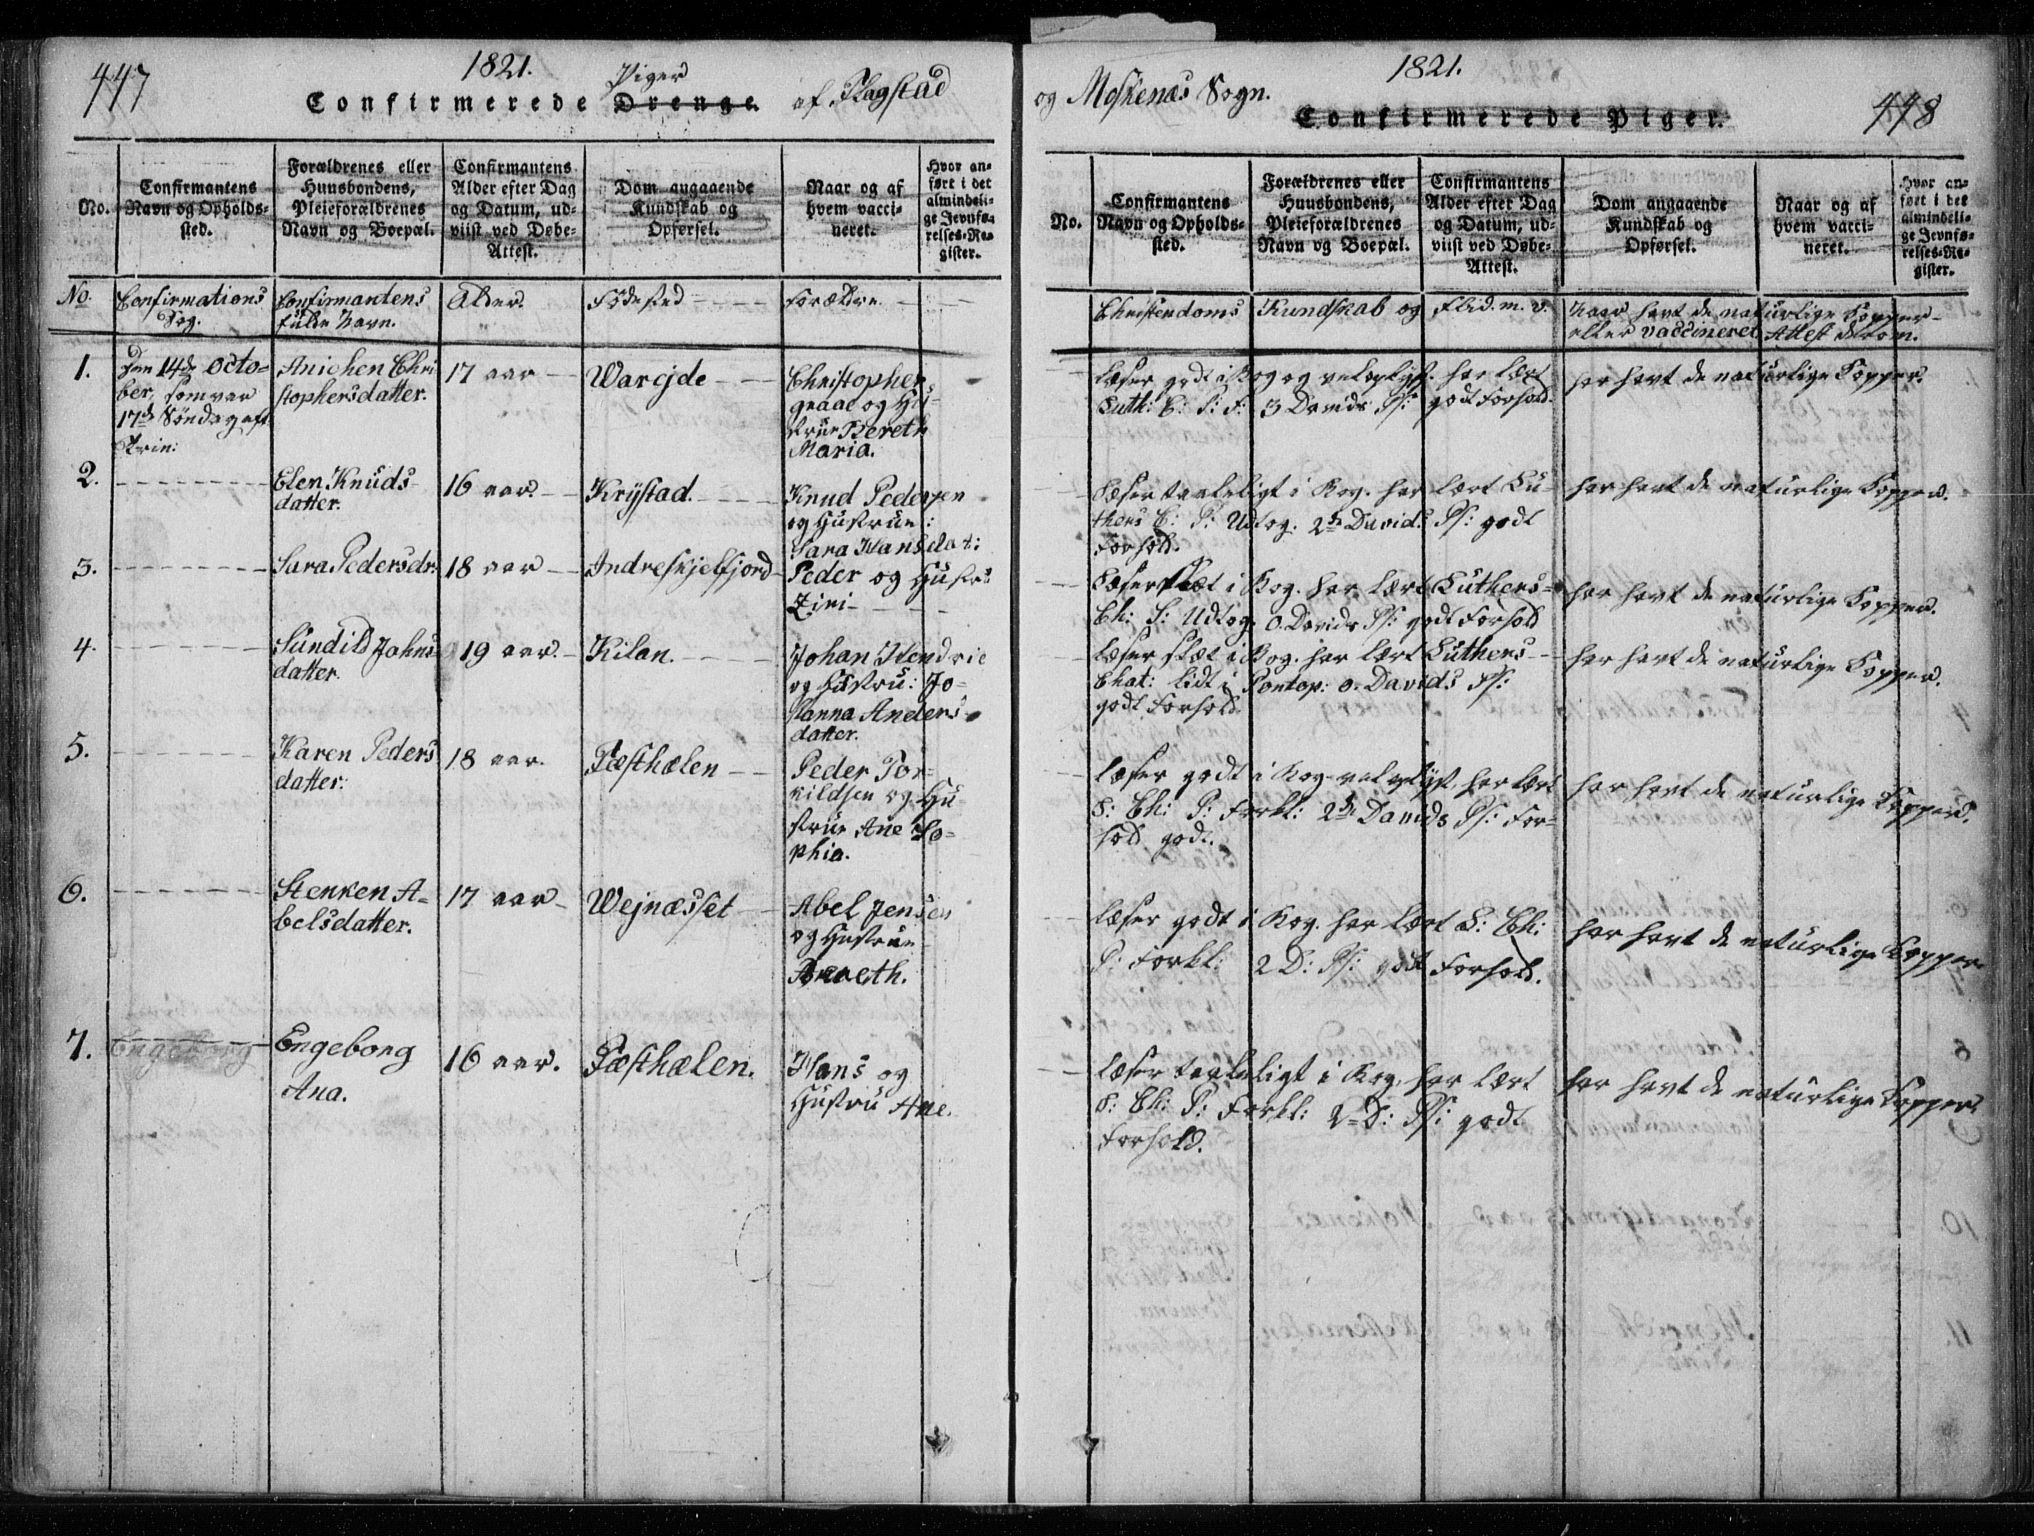 447
1821.
Piger
Confirmerede Drenge. af Flagstad
No.
Confirmantens
Navn og Opholds-
sted.
Forældrenes eller
Huusbondens,
Pleieforældrenes
Navn og Boepæl.
Confirmantens
Alder efter Dag
og Datum, ud-
viist ved Døbe-
Attest.
Dom angaaende
Kundskab og
Opførsel.
Naar og af
hvem vacci-
neret.
Hvor an-
ført i det
almindeli-
ge Jevnfø-
relses-Re-
gister.
No.
Confirmations
Dag.
Confirmantens
fulde Navn.
Alder.
Fødested
Forældre
1.
Den 14de Octo-
ber, som var
17de Søndag eft
Trin:
Anichen Chri
stophersdatter.
17 aar
Wargjde
Christopher
graae og Hu-
strue Bereth
Maria.
2.
Elen Knuds
datter.
16 aar.
Krystad.
Knud Pedersen
og Hustrue:
Sara Hansdat:
3.
Sara Pedersdr:
18 aar
Indreskjelfjord
Peder og Hustru
Ziri
4.
Sundild Johns
datter.
19 aar.
Kilan.
Johan Hendric
og Hustru: Jo-
hanna Anders-
datter.
5.
Karen Peders
datter:
18 aar.
Fæsthælen
Peder Tor-
kildsen og Hu
strue Ane So-
phia.
6.
Stenken A-
belsdatter.
17 aar
Wejnæsset
Abel Jensen
og Hustrue
7.
Engeborg
Engeborg
Ana.
16 aar.
Fæsthælen.
Hans og
Hustru Ane.
1821.
448
og Moskenæs Sogn.
Confirmerede Piger.
No.
Confirmantens
Navn og Opholds-
sted.
Forældrenes eller
Huusbondens,
Pleieforældrenes
Navn og Boepæl.
Confirmantens
Alder efter Dag
og Datum, ud-
viist ved Døbe-
Attest.
Dom angaaende
Kundskab og
Opførsel.
Naar og af
hvem vacci-
neret.
Hvor an-
ført i det
almindeli-
ge Jevnfø-
relses-Re-
gister.
Christendoms Kundskab og Flid. m. v.
Naar havt de naturlige Kopper-
eller vaccineret Attest derom.
læser godt i Bog og vel oplyst. har lært
Luth: C: P: F: 3 Davids Ps: godt Forhold.
har havt de naturlige Kopper.
Læser taaleligt i Bog. har lært Lu-
thers C: P: Udtog. 2de Davids Ps: godt
Forhold.
har havt de naturlige Kopper.
Læser slæt i Bog. har lært Luthers
Ch: P: Udtog. o. Davids Ps: godt Forhold
har havt de naturlige Kopper.
læser slæt i Bog. har lært Luthers
Chat: lidt i Pontop: o. Davids Ps:
godt Forhold.
har havt de naturlige Kopper.
læser godt i Bog vel oplyst, har lært
L: Ch: P: Forkl: 2de Davids Ps: For-
hold godt.
har havt de naturlige Kopper.
læser godt i Bog. har lært L: Ch:
P: Forkl: 2 D: Ps: godt Forhold.
har havt de naturlige Kopper
læser taaleligt i Bog, har lært
L: Ch: P: Forkl: 2 D: Ps: godt
Forhold.
har havt de naturlige Kopper.